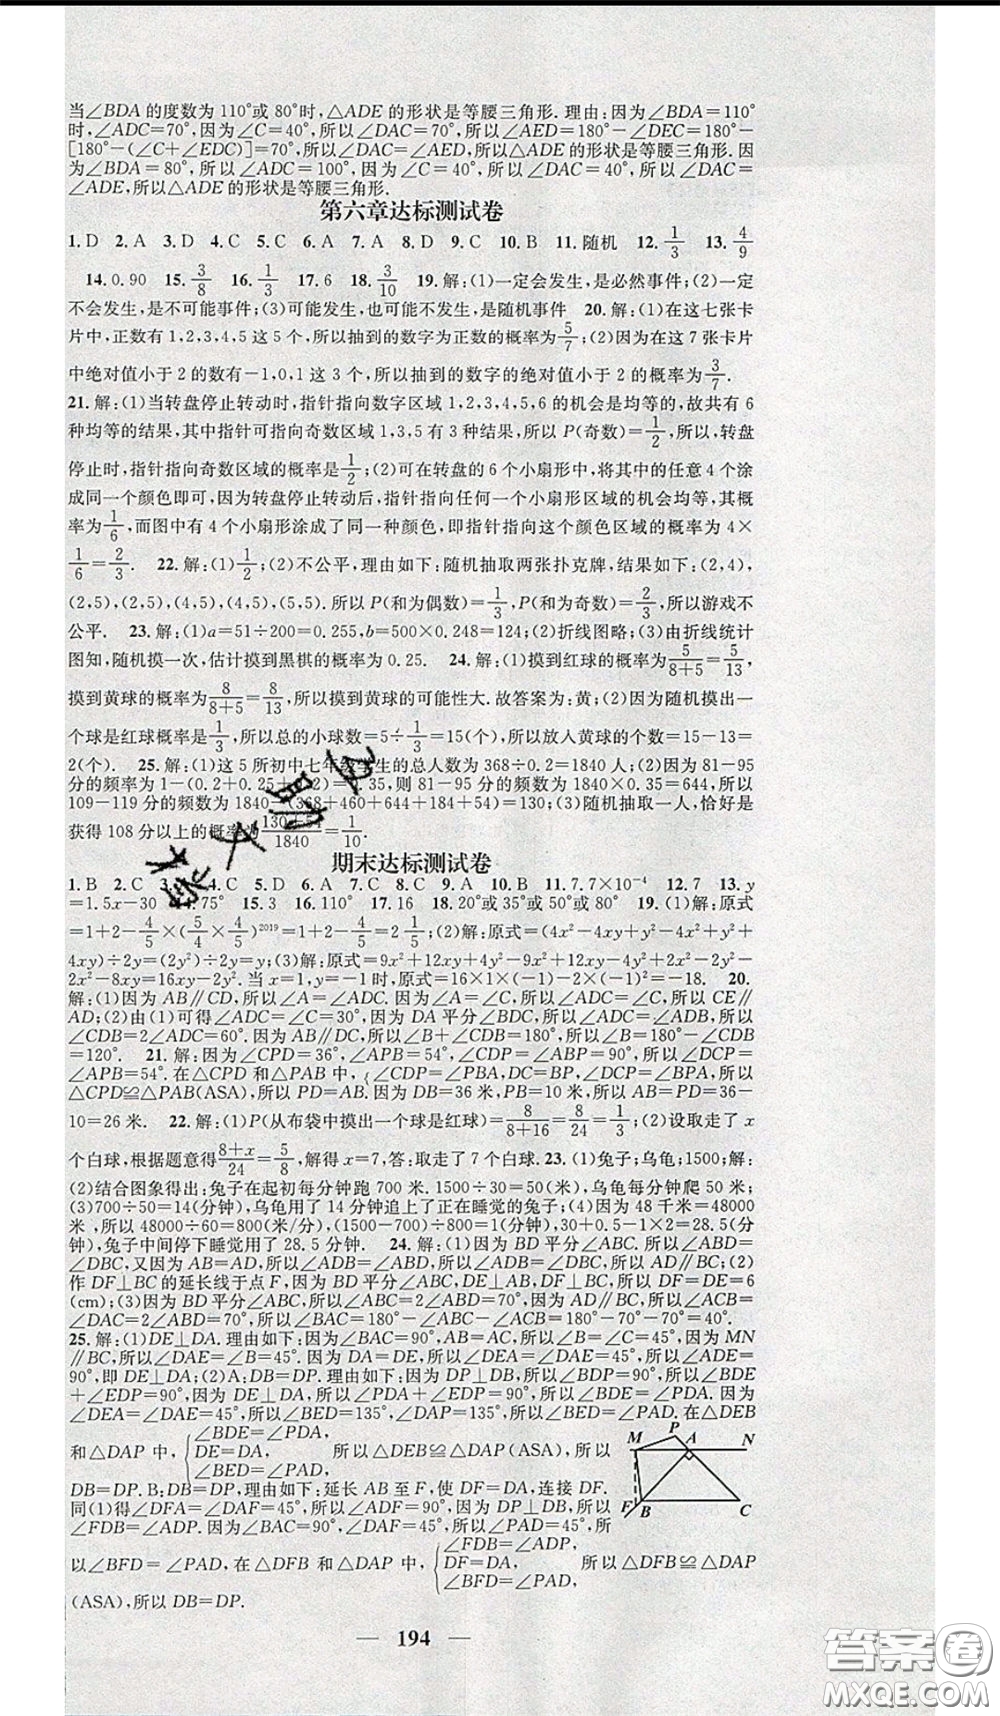 当∠BDA 的度数为 110°或 80°时,△ADE 的形状是等腰三角形.理由:因为∠BDA=110°
时,∠ADC=70°,因为∠C=40°,所以∠DAC=70°,所以∠AED=180°-∠DEC=180°-
[180°-(∠C+∠EDC)]=70°,所以∠DAC=∠AED,所以△ADE 的形状是等腰三角形.因
为∠BDA=80°,所以∠ADC=100°,因为∠C=40°,所以∠DAC=40°,所以∠DAC=
∠ADE,所以△ADE 的形状是等腰三角形.
第六章达标测试卷
1.D 2.A 3.D 4.C 5.C 6.A 7.A 8.D 9.C 10.B 11.随机 12.1/3 13.4/9
14.0.90 15.3/8 16.1/3 17.6 18.3/10 19.解:(1)一定会发生,是必然事件;(2)一定
不会发生,是不可能事件;(3)可能发生,也可能不发生,是随机事件 20.解:(1)在这七张卡
片中,正数有 1,2,3,4,5 这 5 个,所以抽到的数字为正数的概率为5/7;(2)因为在这 7 张卡片
中绝对值小于 2 的数有-1,0,1 这 3 个,所以抽到的数字的绝对值小于 2 的概率为3/7.
21.解:(1)当转盘停止转动时,指针指向数字区域 1,2,3,4,5,6 的机会是均等的,故共有 6
种均等的结果,其中指针可指向奇数区域 1,3,5 有 3 种结果,所以 P(奇数)=1/2,所以,转盘
停止时,指针指向奇数区域的概率是1/2;(2)可在转盘的 6 个小扇形中,将其中的任意 4 个涂
成同一个颜色即可,因为转盘停止转动后,指针指向任何一个小扇形区域的机会均等,其概
率为1/6,而图中有 4 个小扇形涂成了同一种颜色,即指针指向这个颜色区域的概率为 4×
1/6=2/3. 22.解:(1)1/2;(2)不公平,理由如下:随机抽取两张扑克牌,结果如下:(2,4),
(2,5),(2,5),(4,5),(4,5),(5,5).所以 P(和为偶数)=1/3,P(和为奇数)=2/3,所以游戏不
公平. 23.解:(1)a=51÷200=0.255,b=500×0.248=124;(2)折线图略;(3)由折线统计
图知,随机摸一次,估计摸到黑棋的概率为 0.25. 24.解:(1)摸到红球的概率为5/(8+5)=5/13,
摸到黄球的概率为8/(8+5)=8/13,所以摸到黄球的可能性大.故答案为:黄;(2)因为随机摸出一
个球是红球概率是1/3,所以总的小球数=5÷1/3=15(个),所以放入黄球的个数=15-13=
2(个). 25.解:(1)这 5 所初中七年级学生的总人数为 368÷0.2=1840 人;(2)因为 81-95
分的频率为 1-(0.2+0.25+ 35,则 81-95 分的频数为 1840×0.35=644,所以
109-119 分的频数为 1840-(368+460+644+184+54)=130;(3)随机抽取一人,恰好是
获得 108 分以上的概率为(130+54)/1840=1/10.
期末达标测试卷
1.B 2.C 3. 4.C 5.D 6.A 7.C 8.C 9.A 10.B 11.7.7×10⁻⁴ 12.7 13.y
=1.5x-30 14.75° 15.3 16.110° 17.16 18.20°或 35°或 50°或 80° 19.(1)解:原式
=1+2-4/5×(5/4×4/5)²⁰¹⁹=1+2-4/5=2 1/5;(2)解:原式=(4x²-4xy+y²-4x²+y²+
4xy)÷2y=(2y²)÷2y=y;(3)解:原式=9x²+12xy+4y²-9x²+12xy-4y²+2x²-2y²-
2x²-8xy=16xy-2y².当 x=1,y=-1 时,原式=16×1×(-1)-2×(-1)²=-18. 20.
解:(1)因为 AB∥CD,所以∠A=∠ADC.因为∠A=∠C,所以∠ADC=∠C,所以 CE∥
AD;(2)由(1)可得∠ADC=∠C=30°,因为 DA 平分∠BDC,所以∠ADC=∠ADB,所以
∠CDB=2∠ADC=60°.因为 AB∥DC,所以∠B+∠CDB=180°,所以∠B=180°-∠CDB
=120°. 21.解:因为∠CPD=36°,∠APB=54°,∠CDP=∠ABP=90°,所以∠DCP
=∠APB=54°.在△CPD 和△PAB 中,{∠CDP=∠PBA,DC=BP,∠DCP=∠BPA,所以
△CPD≌△PAB(ASA),所以 PD=AB.因为 DB=36 米,PB=10 米,所以 AB=PD=36-
10=26 米. 22.解:(1)P(从布袋中摸出一个球是红球)=8/(8+16)=8/24=1/3;(2)设取走了 x
个白球,根据题意得(8+x)/24=5/8,解得 x=7,答:取走了 7 个白球.23.(1)兔子;乌龟;1500;解:
(2)结合图象得出:兔子在起初每分钟跑 700 米.1500÷30=50(米),乌龟每分钟爬 50 米;
(3)700÷50=14(分钟),乌龟用了 14 分钟追上了正在睡觉的兔子;(4)因为 48 千米=48000
米,所以 48000÷60=800(米/分),(1500-700)÷800=1(分钟),30+0.5-1×2=28.5(分
钟),兔子中间停下睡觉用了 28.5 分钟. 24.解:(1)因为 BD 平分∠ABC.所以∠ABD=
∠DBC,又因为 AB=AD,所以∠ADB=∠ABD,所以∠ADB=∠DBC,所以 AD∥BC;(2)
作 DF⊥BC 的延长线于点 F,因为 BD 平分∠ABC,DE⊥AB,DF⊥BC,所以 DF=DE=6
(cm);(3)因为 BD 平分∠ABC,所以∠ABC=2∠ABD=70°,因为 AD∥BC,所以∠ACB=
∠DAC=2∠ABD=70°,所以∠BAC=180°-∠ABC-∠ACB=180°-70°-70°=40°.
25.解:(1)DE⊥DA.理由如下:因为∠BAC=90°,AB=AC,所以∠B=∠C=45°,因为 MN
∥BC,所以∠DAE=∠B=45°.因为 DA=DE,所以∠DEA=∠DAE=45°,所以∠ADE=
90°,即 DE⊥DA;(2)A:DB=DP.理由如下:因为 DP⊥DB,所以∠BDP=90°,所以∠BDE
+∠EDP=90°,因为 DE⊥DA,所以∠PDA+∠EDP=90°,所以∠BDE=∠PDA.因为
∠DEA=∠DAE=45°,所以∠BED=135°,∠DAP=135°,所以∠BED=∠PAD.在△DEB
和△DAP 中,{∠BDE=∠PDA, DE=DA, ∠BED=∠PAD, 所以△DEB≌△DAP(ASA),所以
DB=DP.B:DB=DP,理由如下:延长 AB 至 F,使 DF=DA,连接 DF.
同(1)得∠DFA=∠DAF=45°,所以∠ADF=90°,因为 DP⊥DB,所以
∠FDB=∠ADP.因为∠BAC=90°,∠DAF=45°,所以∠PAD=45°,所
以∠BFD=∠PAD,在△DFB 和△DAP 中,{∠FDB=∠ADP, DF=DA, ∠BFD=∠PAD, 所以△DFB≌△DAP
(ASA),所以 DB=DP.
M P A N
F B C
194
答案圈
MXQE.COM